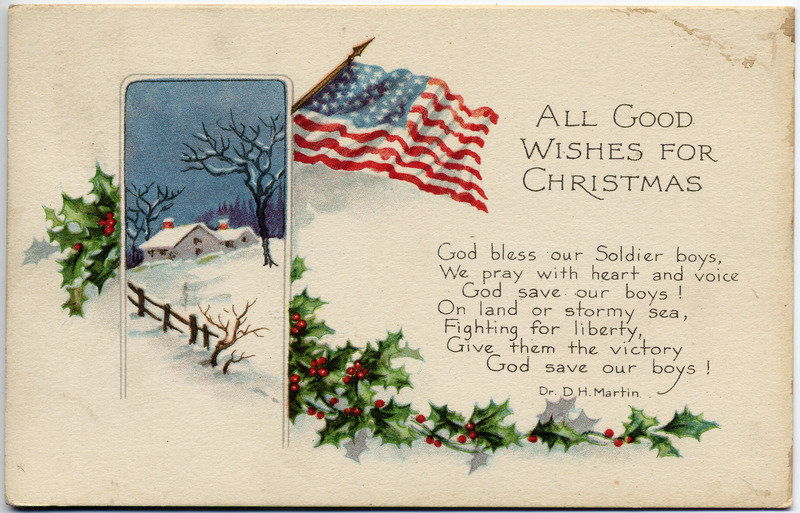 ALL GOOD
WISHES FOR
CHRISTMAS
God bless our Soldier boys,
We pray with heart and voice
God save our boys!
On land or stormy sea,
Fighting for liberty,
Give them the victory
God save our boys!
Dr. D.H. Martin.